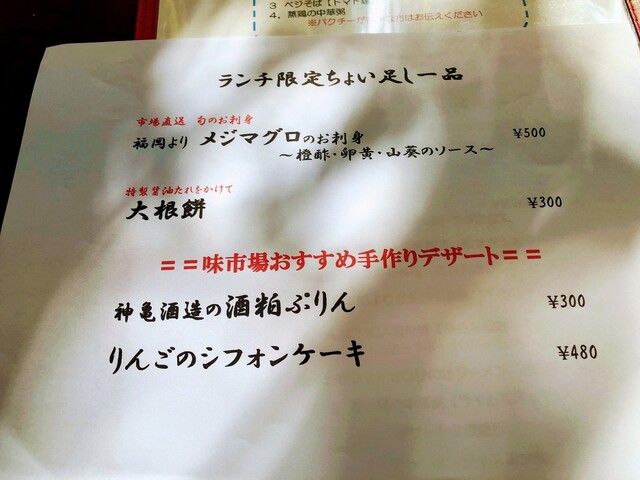 3 ベジそば【トマト
4. 蒸鶏の中華粥
※パクチーが はお伝えください
ランチ限定ちょい足し一品
市場直送 旬のお刺身
福岡より メジマグロのお刺身 ¥500
～橙酢・卵黄・山葵のソース～
特製醤油たれをかけて
大根餅 ¥300
＝＝味市場おすすめ手作りデザート＝＝
神亀酒造の酒粕ぷりん ¥300
りんごのシフォンケーキ ¥480